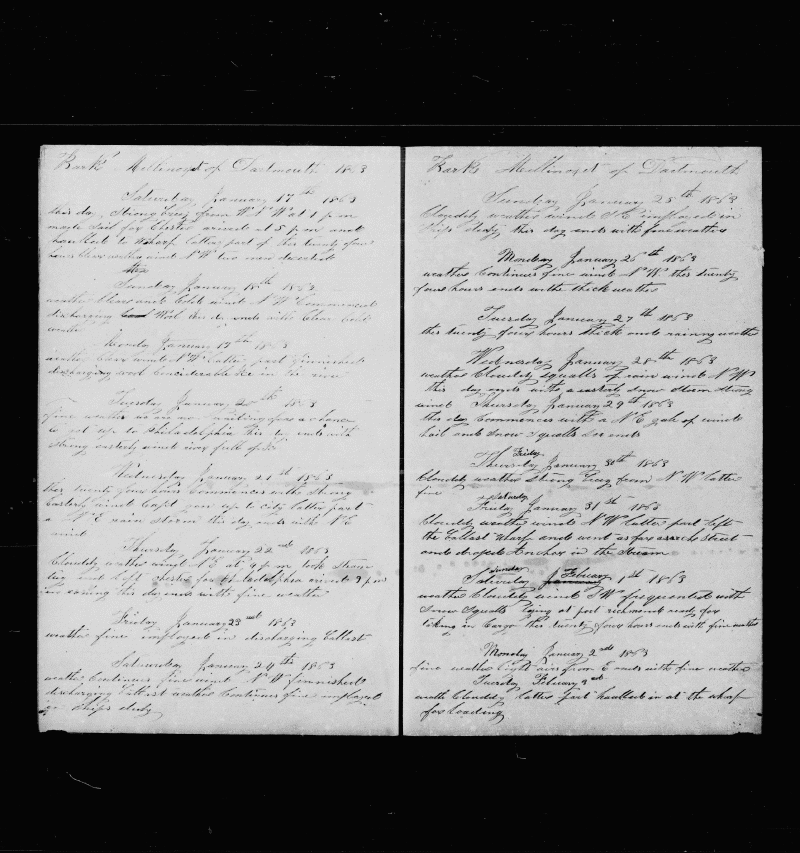 Bark Millinocet of Dartmouth 1863
Saturday January 17th 1863
this day Strong breez from W N W at 1 p m
made Sail for Chester arrived at 5 p m and
haulled to Wharf latter part of this twenty four
hours blows wind N W two men deserted
Sunday January 18th 1863
weather Clear and Cold wind N W Commenced
discharging Wood this day ends with Clear Cold
weath
Monday January 19th 1863
weather Clear wind N W latter part finnished
discharging wood Considerable ice in the river
Tuesday January 20th 1863
fine weather we are now waiting for a chance
to get up to Philadelphia this day ends with
strong easterly wind river full of ice
Wednesday January 21st 1863
this twenty four hours Commences with Strong
Easterly wind Capt gone up to city latter part
a N E rain storm this day ends with N E
wind
Thursday January 22nd 1863
Cloudily weather wind N E at 4 p m took Steam
tug and left Chester for Philadelphia arived 9 p m
this day ends with fine weather
Friday January 23nd 1863
weather fine imployed in discharging Ballist
Saturday January 24th 1863
weather Continues fine wind N W finnished
discharging ballist weather Continues fine imployed
Ships duty
Bark Millinocet of Dartmouth
Sunday January 25th 1863
Cloudily weather wind S E imployed in
Ships duty this day ends with fine weather
Monday January 26th 1863
weather Continues fine wind N W this twenty
four hours ends with thick weather
Tuesday January 27th 1863
this twenty four hours thick and rainny weath
Wednesday January 28th 1863
weather Cloudily squalls of rain wind N W
this day ends with a easterly Snow Storm Strong
wind Thursday January 29th 1863
this day Commences with a N E gale of wind
hail and Snow Squalls So ends
Friday
Thursday January 30th 1863
Cloudily weather Strong breez from N W latter
fine
Saturday
Friday January 31st 1863
Cloudily weather wind N W latter part left
the ballast wharf and went as far as street
and droped Anchor in the Stream
Sunday Febuary
Saturday January 1st 1863
weather Cloudily wind S W frequented with
Snow Squalls lying at port richmond ready for
taking in Cargo this twenty four hours ends with fine weather
Monday January 2nd 1863
fine weather light airs from E ends with fine weather
Tuesday Febuary 3nd
weath Cloudily latter part haulled in at the wharf
for loading